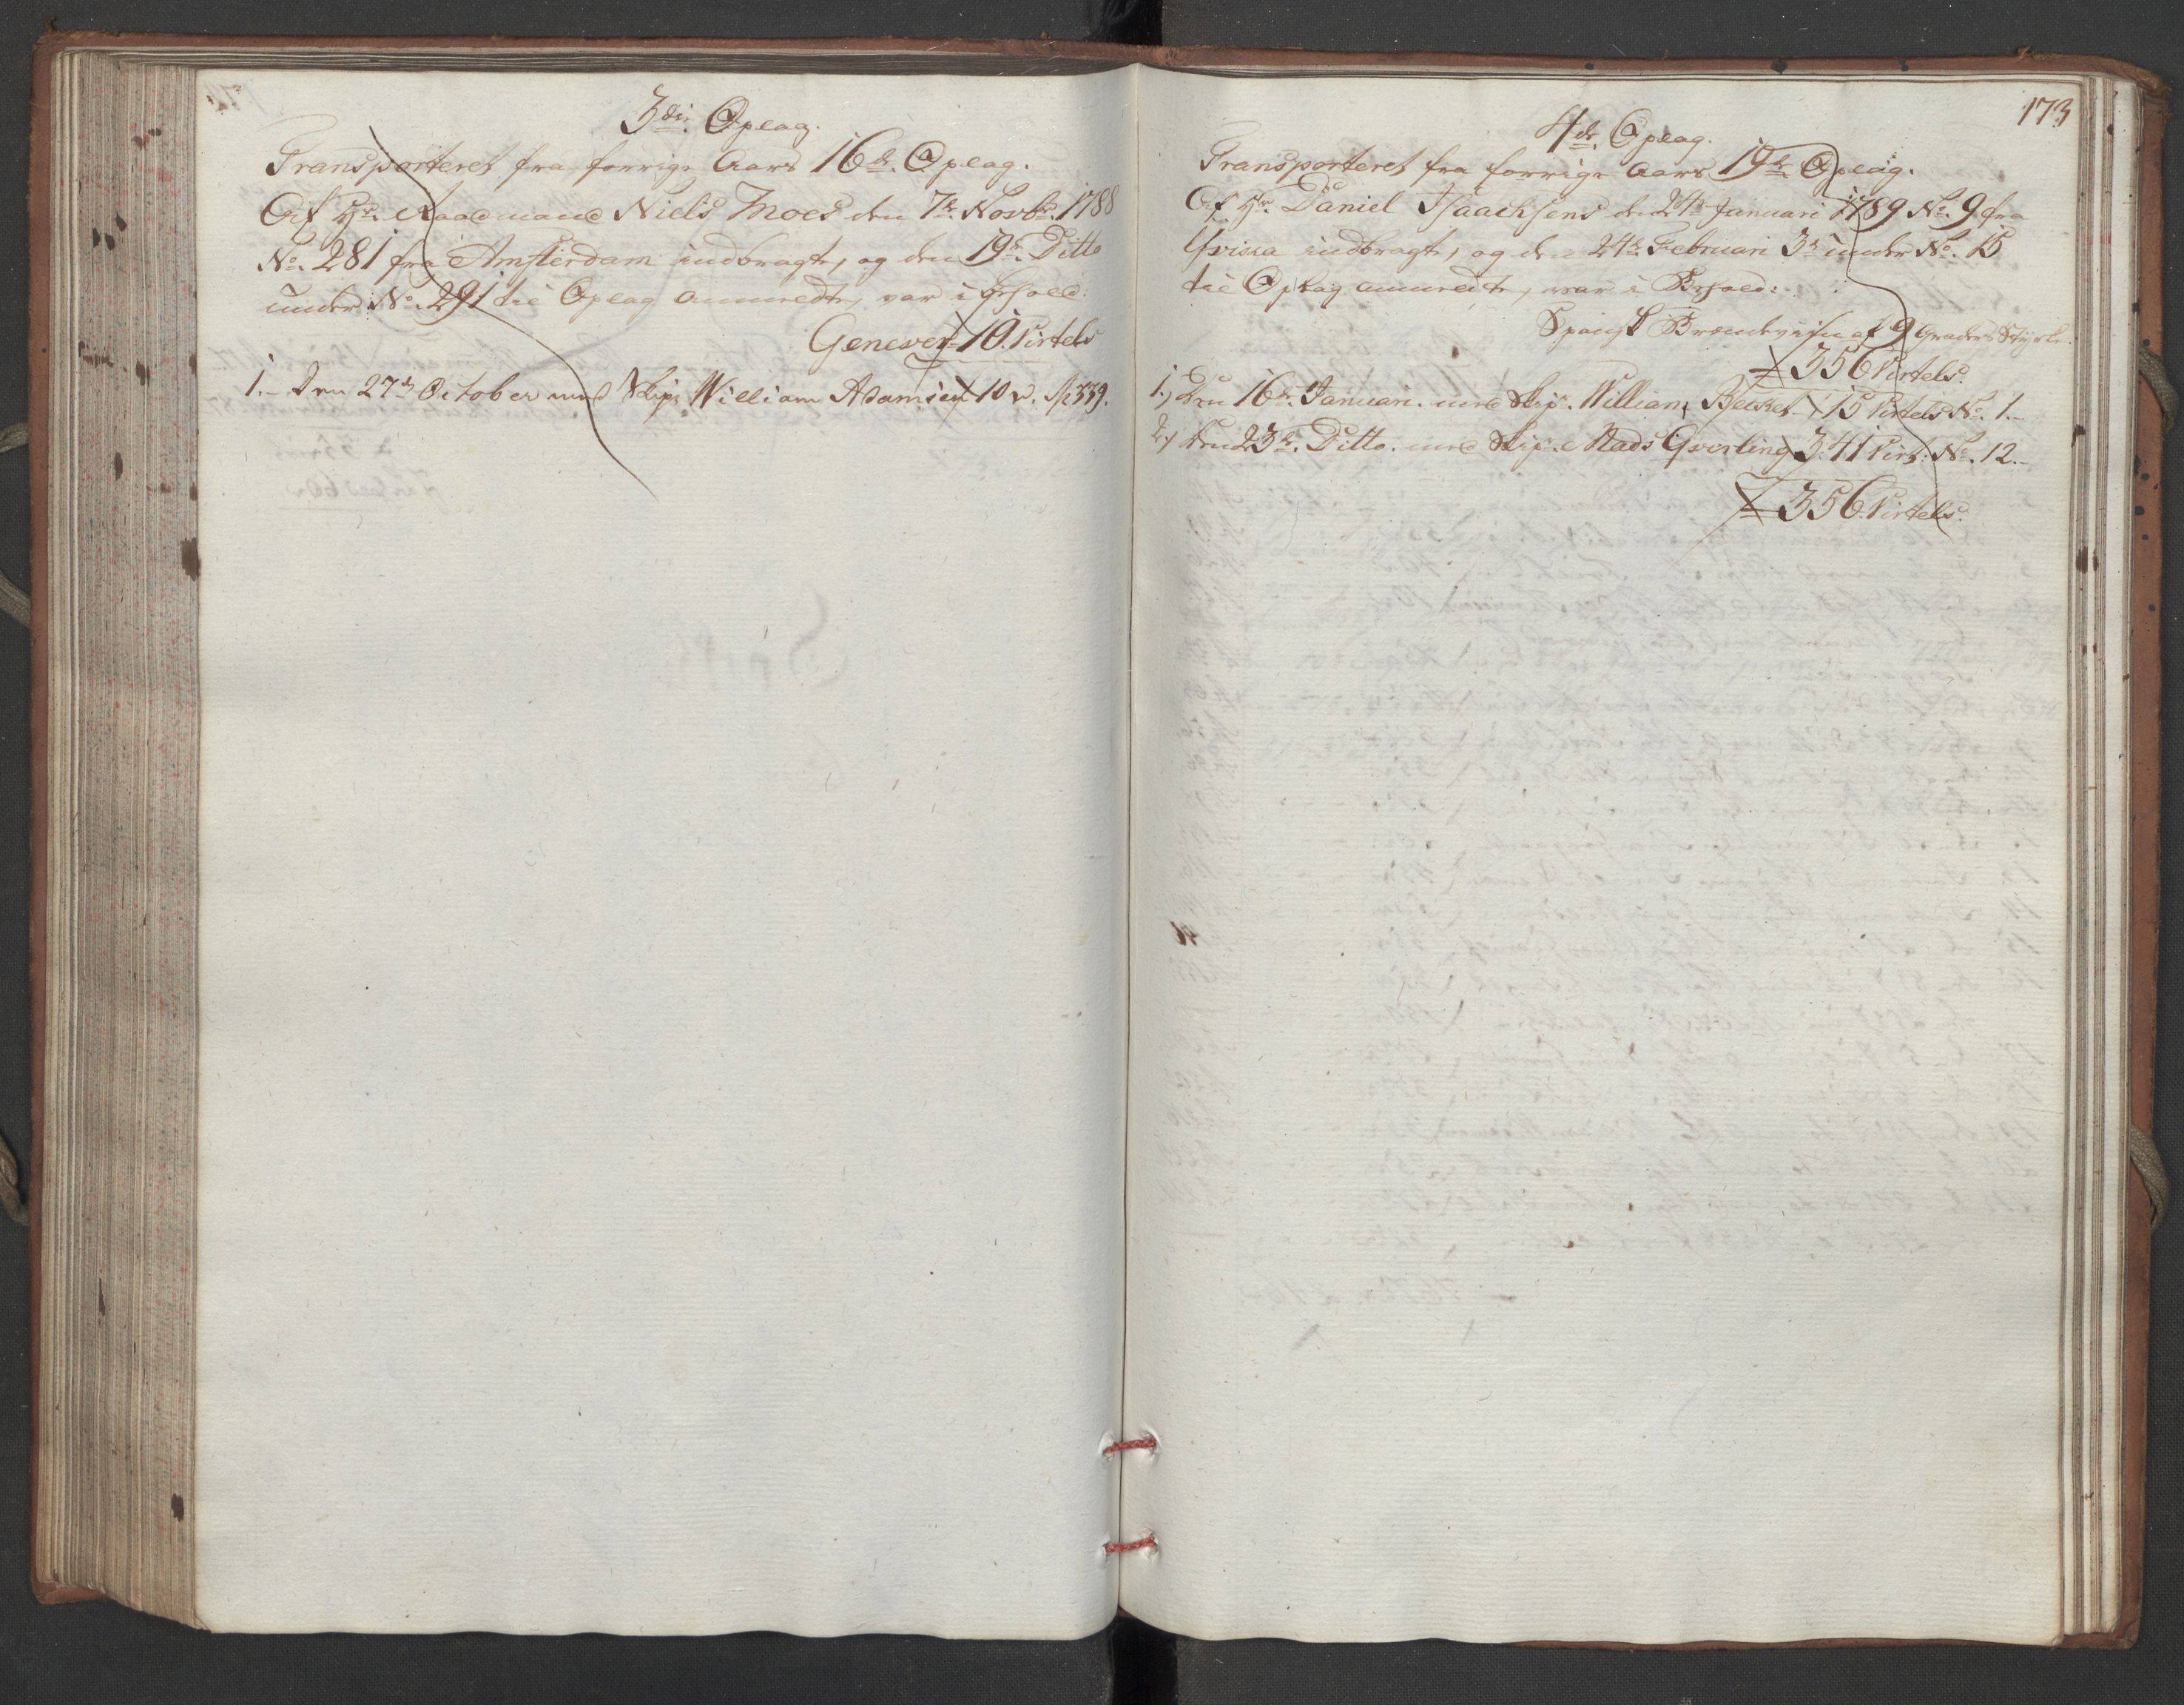 3die Oplag.
Transporteret fra forrige Aars 16de Oplag.
Af Hr. Raadmand Niels Moes den 7de Novbr. 1788
No. 281 fra Amsterdam indbragte, og den 19de Ditto
under No. 291 til Oplag anmeldte, var i Behold:
Genever 10 Virtels
1.- Den 27de October med Skip. William Adamsen 10 v. No 339.
173
4de Oplag.
Transporteret fra forrige Aars 19de Oplag.
Af Hr. Daniel Isaachsens den 24de Januari 1789 No. 9 fra
Yvissa indbragte, og den 24de Februari under No. 15
til Oplag anmeldte, var i Behold:
Spansk Brændeviin af 9 Graders Styrke.
356 Virtels.
1.) Den 16de Januari. med Skip. William Becket 15 Virtels No. 1.-
2.) Den 23de Ditto. med Skip. Mads Qverling 341 Virt: No. 12.-
356 Virtels.